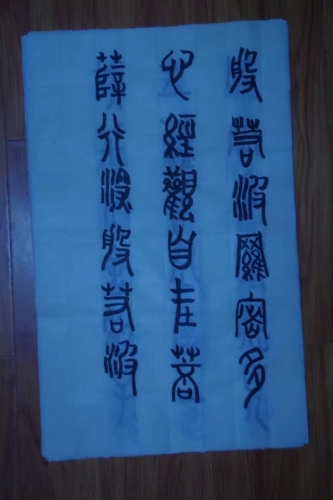 般若波羅密多
心經觀自在菩
薩行深般若波